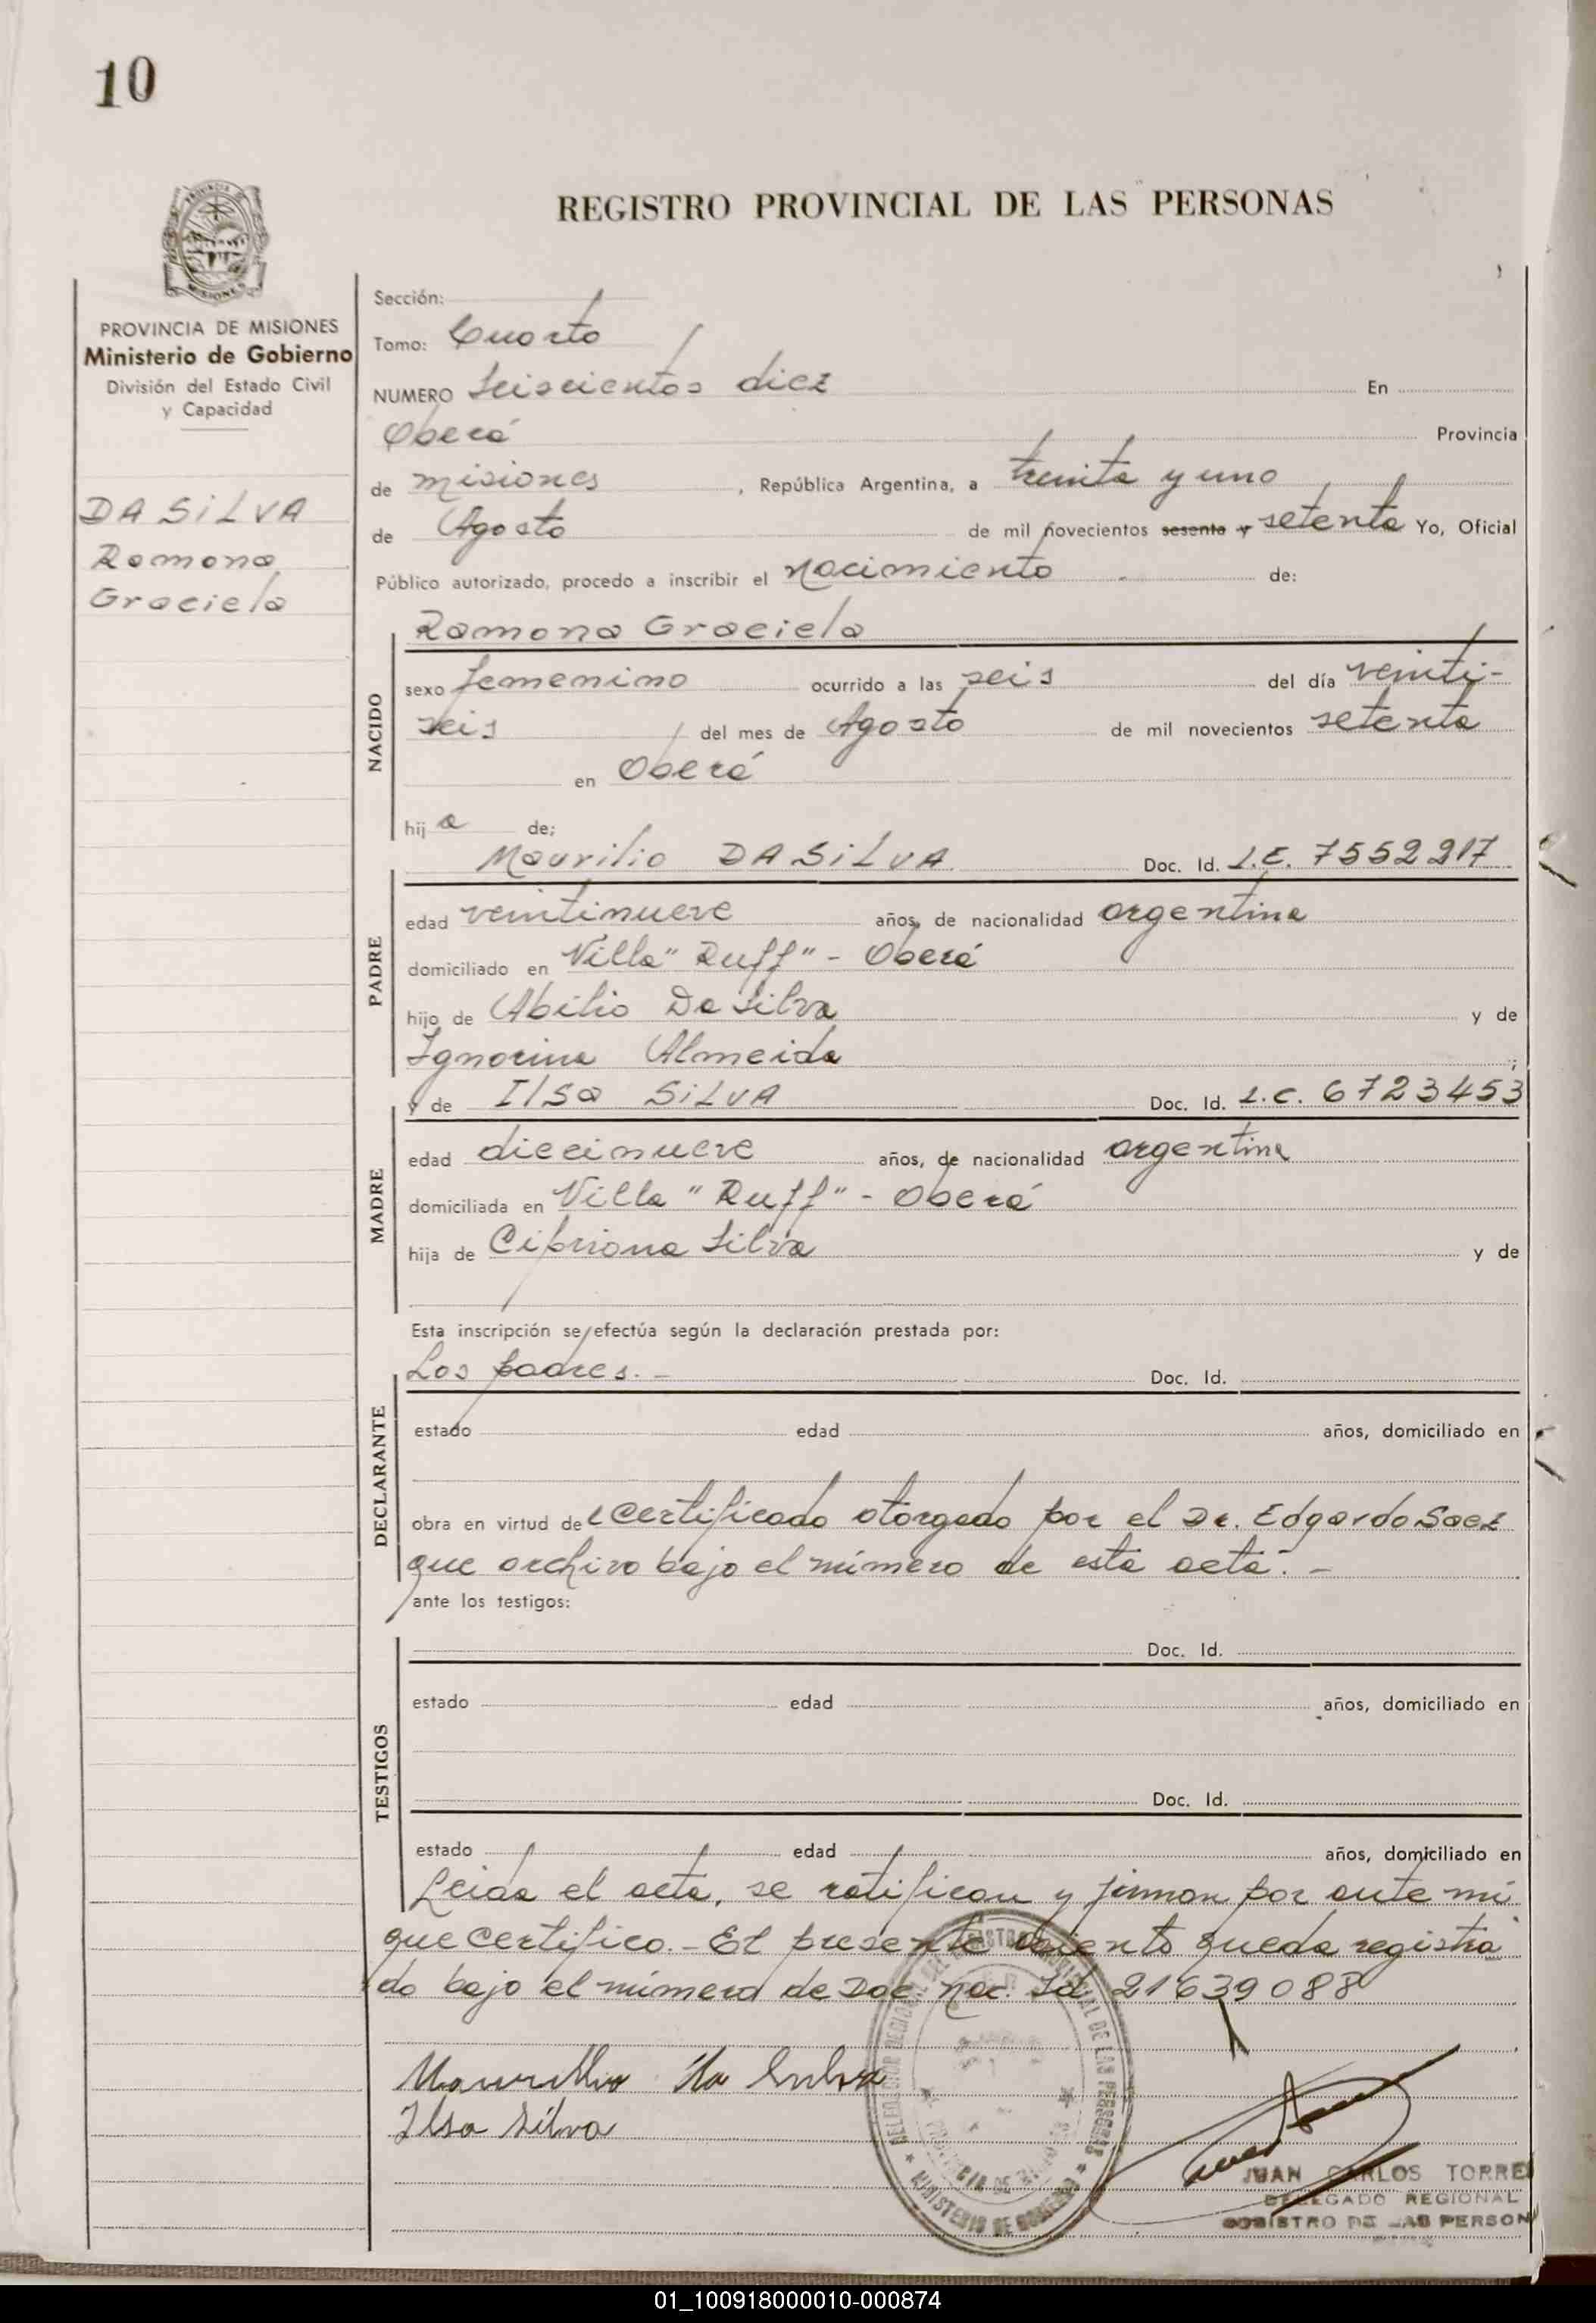 10
REGISTRO PROVINCIAL DE LAS PERSONAS
PROVINCIA DE MISIONES
Ministerio de Gobierno
División del Estado Civil
y Capacidad
DA SiLVA
Ramona
Graciela
Sección:
Tomo: Cuarto
NUMERO Seiscientos diez En
Oberá Provincia
de misiones, República Argentina, a treinta y uno
de Agosto de mil novecientos sesenta y setenta Yo, Oficial
Público autorizado, procedo a inscribir el nacimiento de:
Ramona Graciela
NACIDO
sexo femenino ocurrido a las seis del día veinti-
seis del mes de Agosto de mil novecientos setenta
en Oberá
hija de;
Maurilio DA SiLVA Doc. Id. L.E. 7552217
PADRE
edad veintinueve años, de nacionalidad argentina
domiciliado en Villa "Ruff" - Oberá
hijo de Abilio Da Silva y de
Ignorina Almeida;
y de Ilsa SiLVA Doc. Id. L.C. 6723453
MADRE
edad diecinueve años, de nacionalidad argentina
domiciliada en Villa "Ruff" - Oberá
hija de Cipriana Silva y de
Esta inscripción se efectúa según la declaración prestada por:
Los padres. - Doc. Id.
DECLARANTE
estado edad años, domiciliado en
obra en virtud del certificado otorgado por el Dr. Edgardo Saez
que archivo bajo el número de esta acta. -
ante los testigos:
Doc. Id.
TESTIGOS
estado edad años, domiciliado en
Doc. Id.
estado edad años, domiciliado en
Leida el acta, se ratifican y firman por ante mi
que certifico. - El presente asiento queda registra
do bajo el número de Doc nac. Id 21639088
Maurilio da Silva
Ilsa Silva
MINISTERIO DE GOBIERNO
JUAN CARLOS TORRE
DELEGADO REGIONAL
REGISTRO DE LAS PERSON
01_100918000010-000874